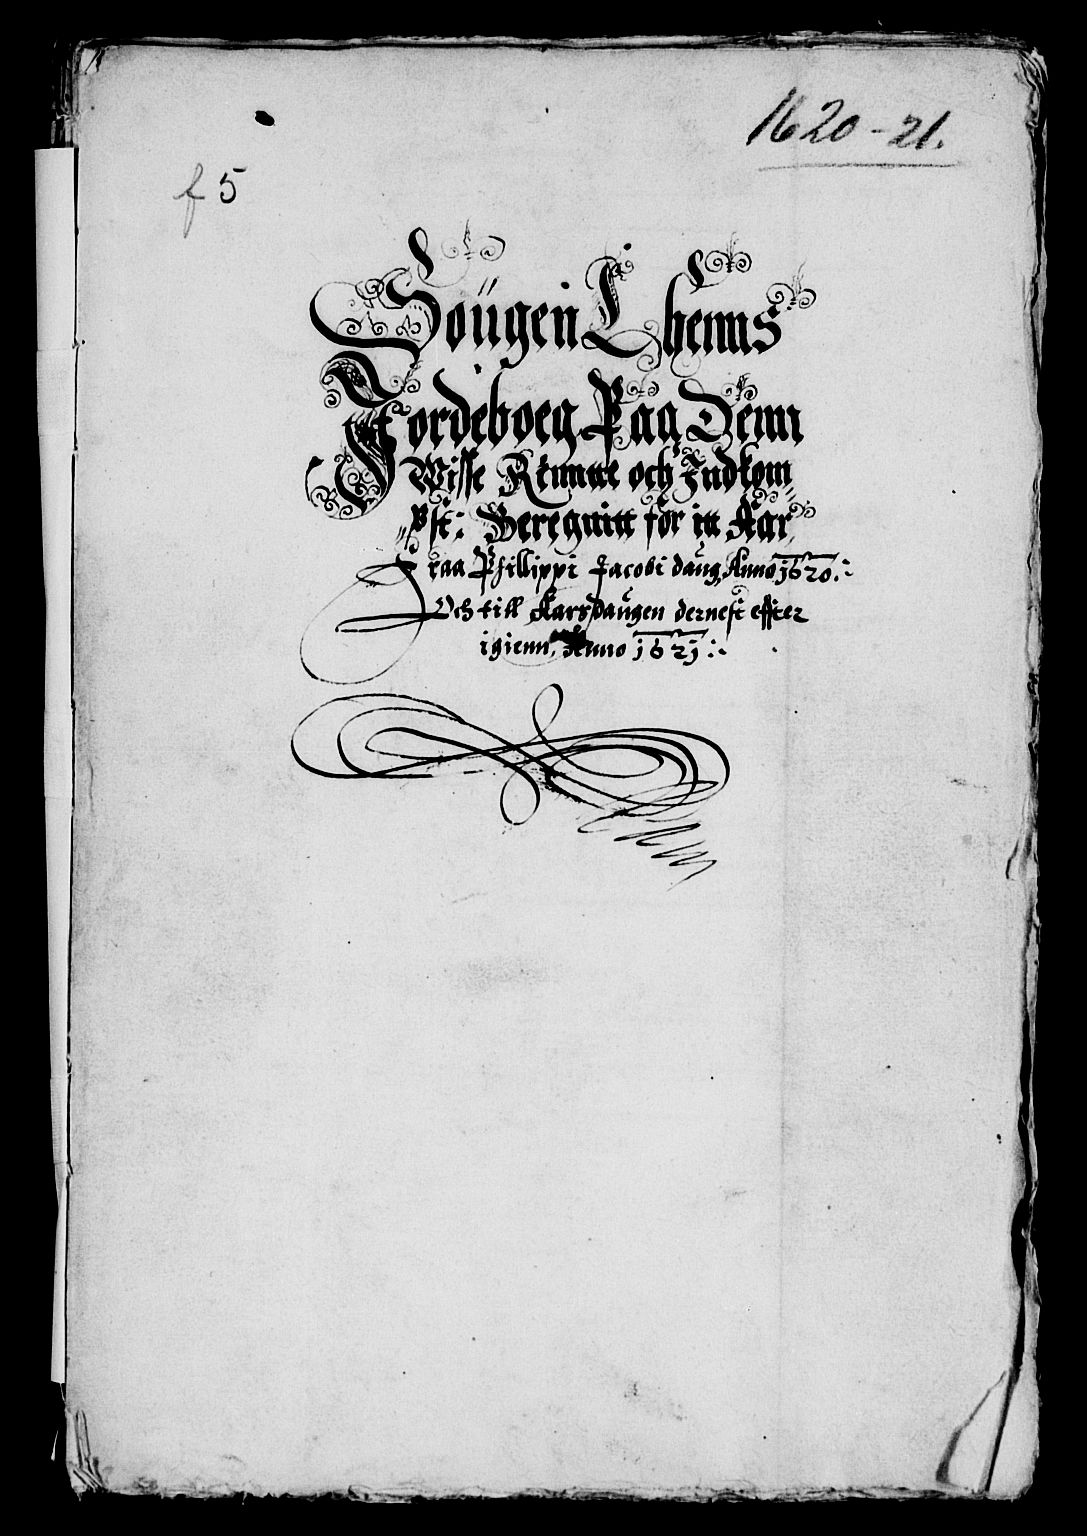 1620-21.
f 5
Soügen Lhenns
Jordeboeg Paa Denn
Wisse Rennte och Indkom„
„pst: Beregnitt för itt Aar„
Fraa Phillippi Jacobi daug Anno 1620.
Och till Aarsdaugen dernest effter
igienn, Anno 1621